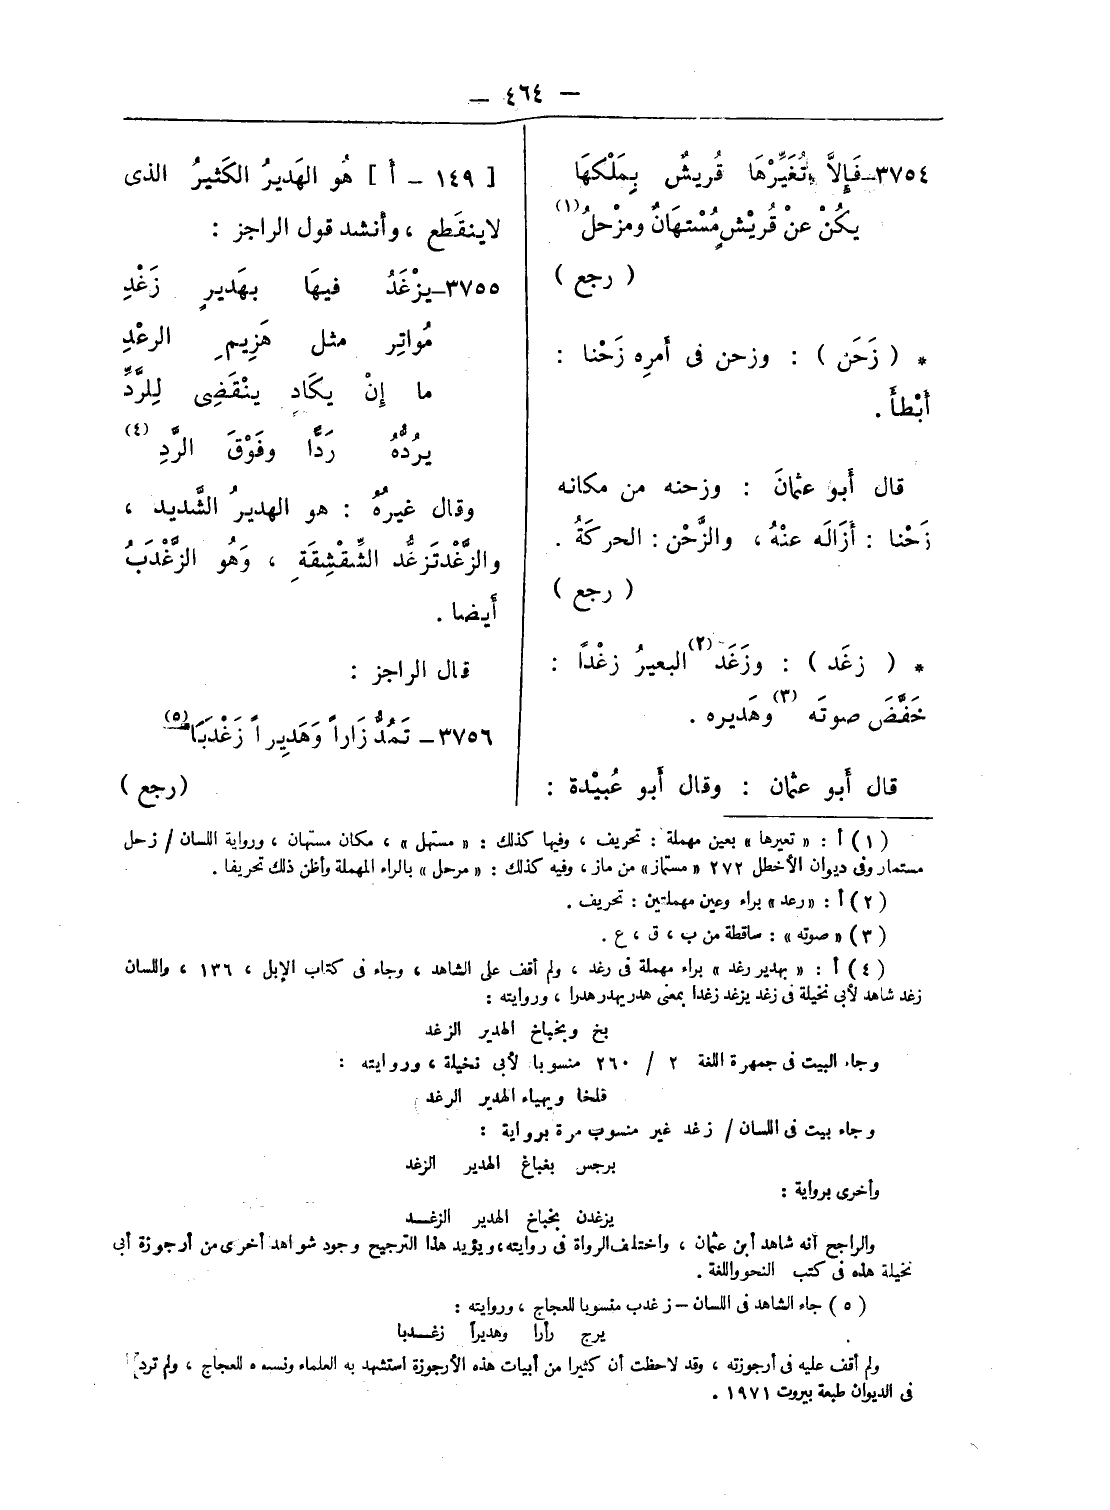 — ٤٦٤ —
٣٧٥٤ــ فَإِلاَّ تُغَيِّرْهَا قُريشٌ بِمَلْكهَا
يكُنْ عنْ قُريْشٍ مُسْتهَانٌ ومزْحلُ (١)
( رجع )
* ( زَحَن ) : وزحن فى أَمرِه زَحْنا :
أَبْطأَ .
قال أَبو عثمانَ : وزحنه من مكانه
زَحْنا : أَزَاله عنْهُ ، والزَّحْن : الحركَةُ .
( رجع )
* ( زغَد ) : وزَغَد (٢) البعيرُ زغْدًا :
خَفَّضَ صوتَه (٣) وهَديره .
قال أَبو عثمان : وقال أَبو عُبيْدة :
[ ١٤٩ ــ أ ] هُو الهَديرُ الكَثيرُ الذى
لاينقَطع ، وأنشد قول الراجز :
٣٧٥٥ــ يزْغَدُ فيهَا بهَديرٍ زَغْدِ
مُواتِر مثل هَزِيمِ الرعْدِ
ما إنْ يكَاد ينْقَضِى لِلرَّدِّ
يردُّه رَدًّا وفَوْقَ الرَّدِ (٤)
وقال غيرهُ : هو الهديرُ الشَّديد ،
والزَّغْدتَزغُّد الشِّقْشِقَةِ ، وَهُو الزَّغْدَبُ
أَيضا .
قال الراجز :
٣٧٥٦ ــ تَمُدُّ زَاراً وَهَدِيراً زَغْدَبَا (٥)
( رجع )
( ١ ) أ : « تعيرها » بعين مهملة : تحريف ، وفيها كذلك : « مستهل » ، مكان مستهان ، ورواية اللسان / زحل
مستماز وفى ديوان الأخطل ٢٧٢ « مستماز » من ماز ، وفيه كذلك : « مرحل » بالراء المهملة وأظن ذلك تحريفا .
( ٢ ) أ : « رعد » براء وعين مهملتين : تحريف .
( ٣ ) « صوته » : ساقطة من ب ، ق ، ع .
( ٤ ) أ : « بهدير رغد » براء مهملة فى رغد ، ولم أقف على الشاهد ، وجاء فى كتاب الإبل ، ١٣٦ ، واللسان
زغد شاهد لأبى نخيلة فى زغد يزغد زغدا بمعنى هدر يهدر هدرا ، وروايته :
بخ وبخباخ الهدير الزغد
وجاء البيت فى جمهرة اللغة ٢ / ٢٦٠ منسوبا لأبى نخيلة ، وروايته :
قلخا ويهياء الهدير الرغد
وجاء بيت فى اللسان / زغد غير منسوب مرة برواية :
برجس بغباغ الهدير الزغد
وأخرى برواية :
يزغدن بخباخ الهدير الزغــد
والراجح أنه شاهد أبن عثمان ، واختلف الرواة فى روايته ، ويؤيد هذا الترجيح وجود شواهد أخرى من أرجوزة أبى
نخيلة هذه فى كتب النحو واللغة .
( ٥ ) جاء الشاهد فى اللسان – زغدب منسوبا للعجاج ، وروايته :
يرج رأرا وهديراً زغــدبا
ولم أقف عليه فى أرجوزته ، وقد لاحظت أن كثيرا من أبيات هذه الأرجوزة استشهد به العلماء ونسبه للعجاج ، ولم ترد
فى الديوان طبعة بيروت ١٩٧١ .